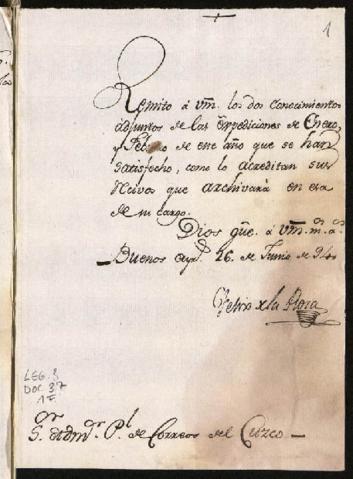 1
Remito á Vm. los dos conocimientos
adjuntos de las Expediciones de Enero,
y Febrero de este año que se han
satisfecho, como lo acreditan sus
recivos que archivará en esa
de su cargo.
Dios gũe. á Vm. m.s a.s
Buenos Ayr.s 26 de Junio de 94
Felix de la Rosa
LEG. 8
DOC. 37
1F
S.or Adm.or P.l de Correos del Cuzco